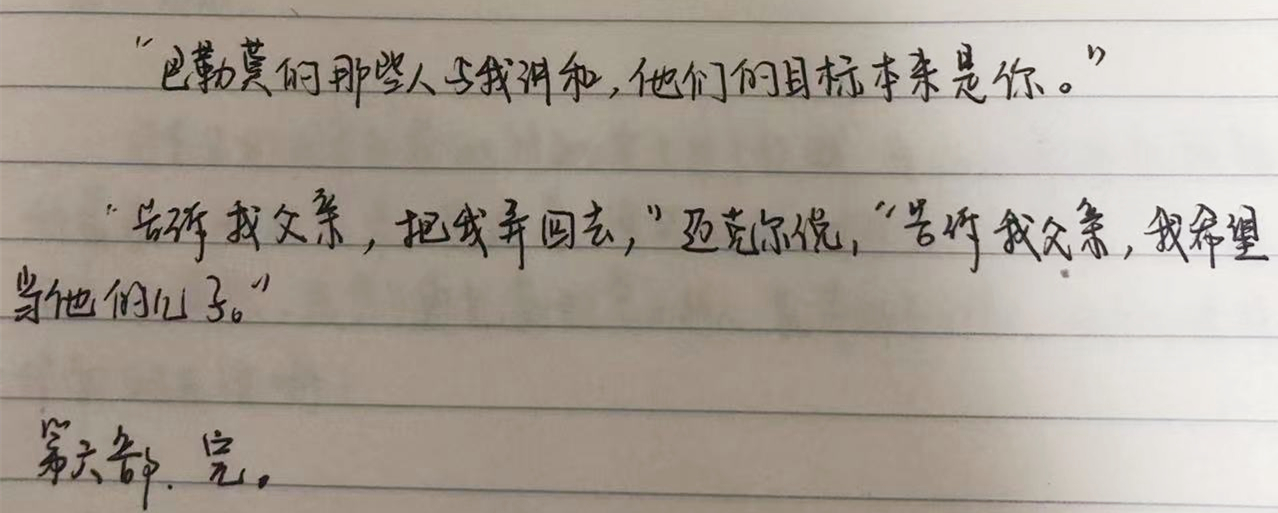 “巴勒莫的那些人与我讲和，他们的目标本来是你。”
“告诉我父亲，把我弄回去，”迈克尔说，“告诉我父亲，我希望
当他的儿子。”
第六部. 完。